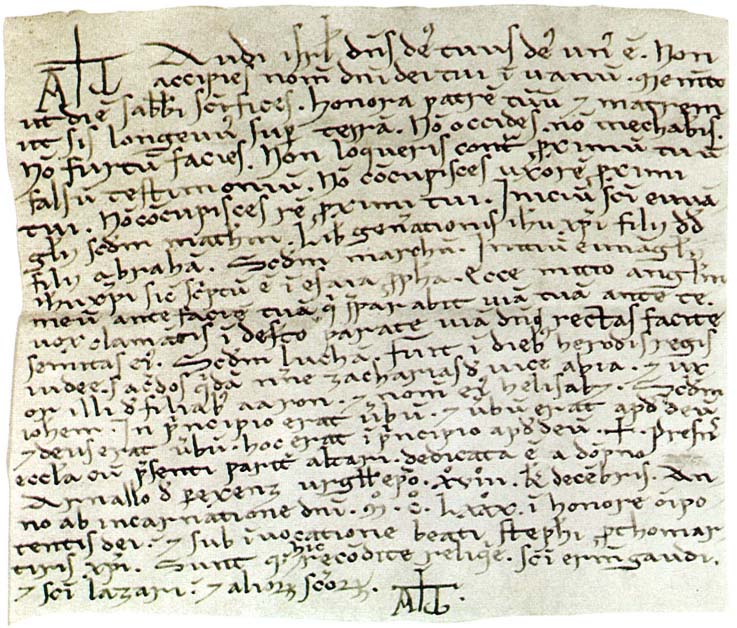 Audi isrl dns de' tuus de' un' ē. Non
accipies nom̄ dni dei tui ī vanū. Memto
ut diē sabbi sc̄ifices. honora patrē tuū ⁊ matrem
ut sis longevus sup̄ terrā. Nō occides. nō mechabis.
Nō furtū facies. Non loqueris cont̄ ꝓximū tuū
falsū testimoniū. Nō cōcupisces uxorē ꝓximi
tui. Nō cōcupisces rē ꝓximi tui. Iniciū sc̄i euuā
glii scdm matheū. Lib̄ gen̄ationis ihu xpi filii dd
filii abrahā. Scdm marchū. Initiū euuāglii
ihu xpi sic sc̄ptū ē ī esaia ꝓpha. Ecce mitto anglm
meū ante faciē tuā. q̄ p̄parabit viā tuā ante te.
uox clamatis ī def̄to parate viā dni rectas facite
semitas ei'. Scdm luchā. Fuit ī dieb; herodis regis
iudee. sac̄dos q̄dā nn̄e zacharias d̄ vice abia. ⁊ ux
or illi d̄ filiab; aaron. ⁊ nom̄ ei' helisab;. Scdm
iohem. In p̄ncipio erat v̄bū. ⁊ v̄bū erat apd deū
⁊ deus erat v̄bū. hoc erat ī p̄ncipio apd deū.
eccl̄a cū p̄senti parit̄ altari. dedicata ē a dōpno
Arnallo d̄ perexenz urgll' ep̄o. xviii. kl decēbris. An
no ab incarnatione dni. m. c. lxxx. ī honore ōipo
tentis dei. ⁊ sub ī vocatione beati stephi ꝓthomar
tiris xpi. Sunt q; hic recōdite reliq̄e. sc̄i ermgaudi.
⁊ sc̄i lazari. ⁊ alioꝝ sc̄oꝝ.